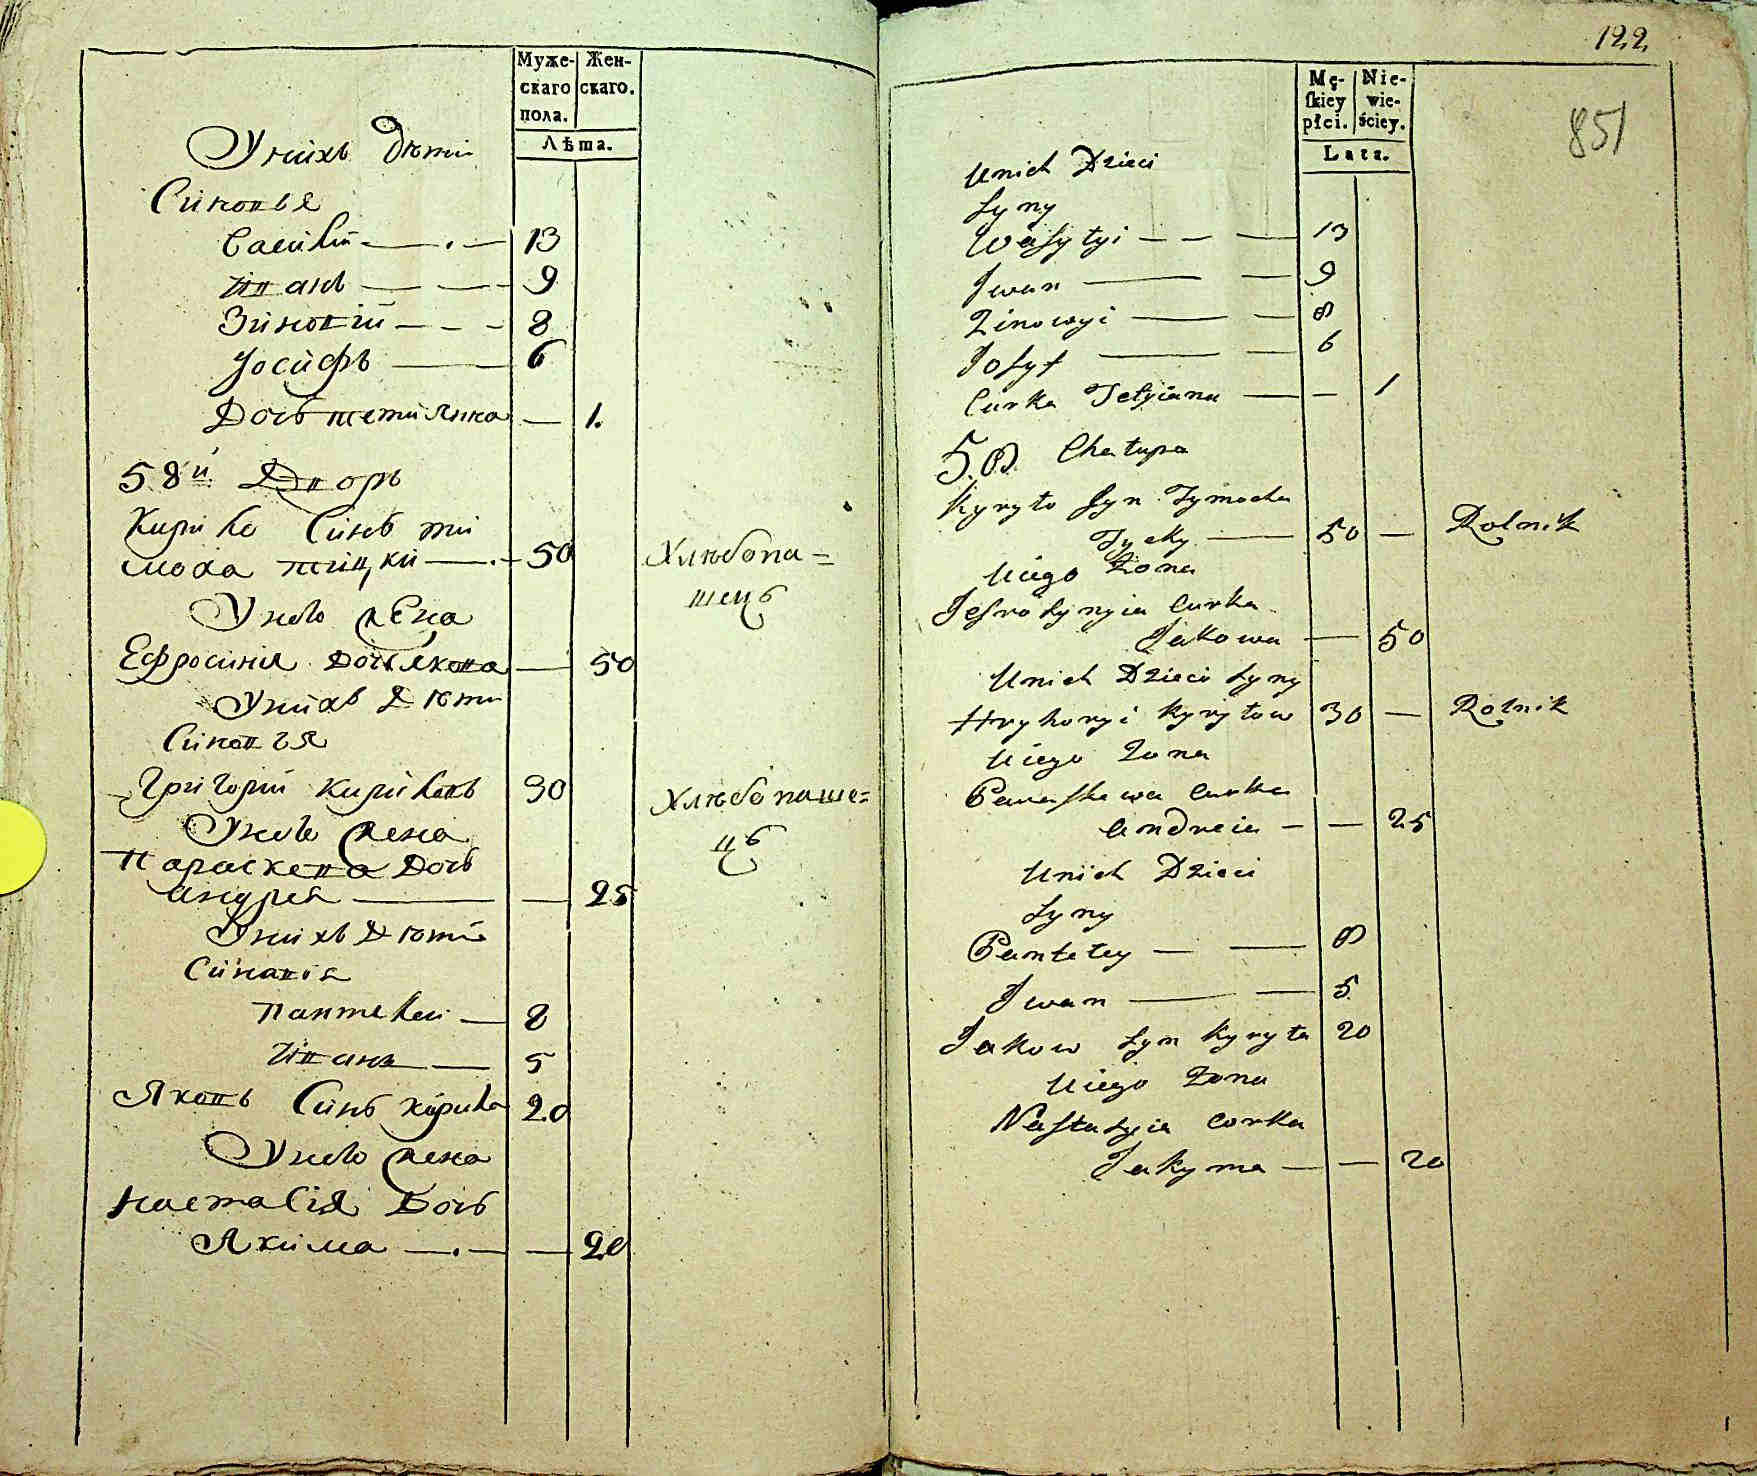 Муже-
скаго
пола.
Жен-
скаго.
Лѣта.
У нихъ Дѣти
Синовья
Василій — . — 13
Иванъ — — - 9
Зиновій — - - 8
Іосифъ — 6
Дочь Тетиянна — 1.
58й Дворъ
Кирило Синъ Ти
моха Тицкій — . - 50 Хлѣбопа=
шець
У него жена
Ефросинія Дочь Якова — 50
У нихъ Дѣти
Синовья
Григорій Кириловъ 30 Хлѣбопаше=
ць
У него жена
Параскева Дочь
Андрея — — 25
У нихъ Дѣти
Синовія
Пантелей — 8
Иванъ — 5
Яковъ Синъ Кирила 20
У него жена
Настасія Дочь
Якима — . — — 20
122
851
Mę-
skiey
płci.
Nie-
wie-
ściey.
Lata.
Unich Dzieci
Syny
Wasylyi — — — 13
Iwan — — 9
Zinowyi — — 8
Iosyf — — 6
Curka Tetyiana — — 1
58. Chałupa
Kyryło Syn Tymocha
Tycky — 50 — Rolnik
Uiego Żona
Jefrosynyia Curka
Jakowa — 50
Unich Dzieci Syny
Hryhoryi Kyryłow 30 — Rolnik
Uiego Żona
Paraskewa Curka
Andreia — — 25
Unich Dzieci
Syny
Panteley — — 8
Iwan — — 5
Jakow Syn Kyryła 20
Uiego Żona
Nastasyia Corka
Jakyma — — 20